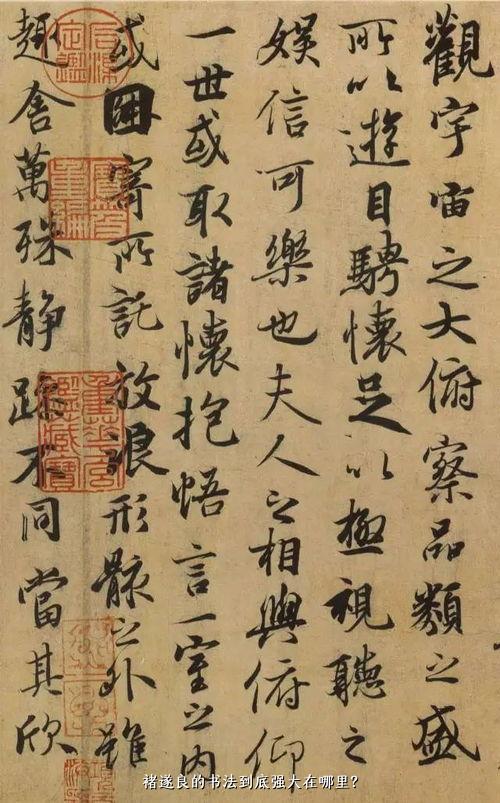 觀宇宙之大俯察品類之盛
所以遊目騁懷足以極視聽之
娛信可樂也夫人之相與俯仰
一世或取諸懷抱悟言一室之內
或因寄所託放浪形骸之外雖
趣舍萬殊静躁不同當其欣
褚遂良的书法到底强大在哪里？